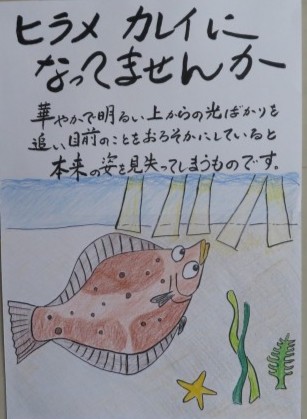 ヒラメ カレイに
なってませんか
華やかで明るい上からの光ばかりを
追い、目前のことをおろそかにしていると
本来の姿を見失ってしまうものです。